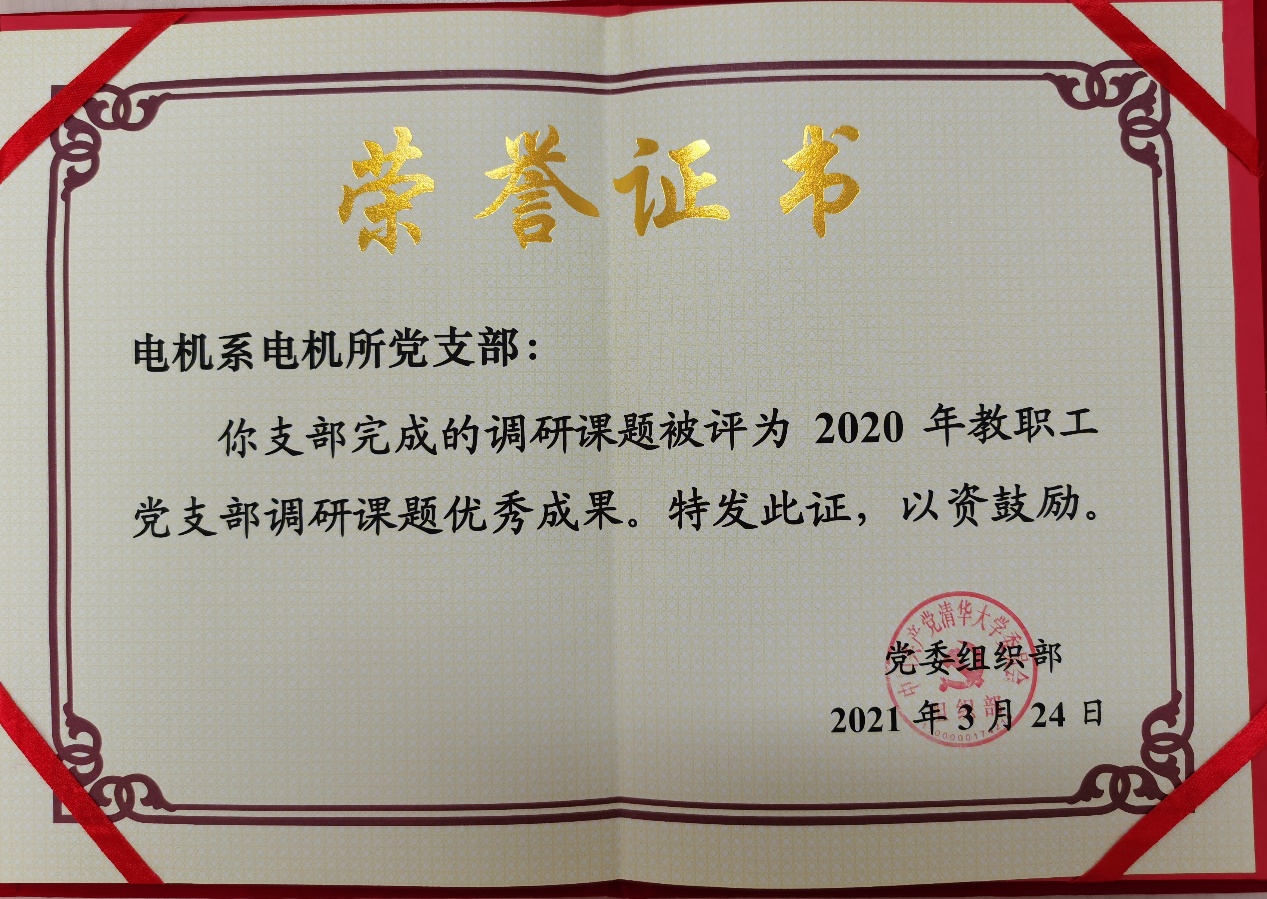 荣誉证书
电机系电机所党支部：
你支部完成的调研课题被评为 2020 年教职工
党支部调研课题优秀成果。特发此证，以资鼓励。
中国共产党清华大学委员会
党委组织部
组织部
2021 年 3 月 24 日